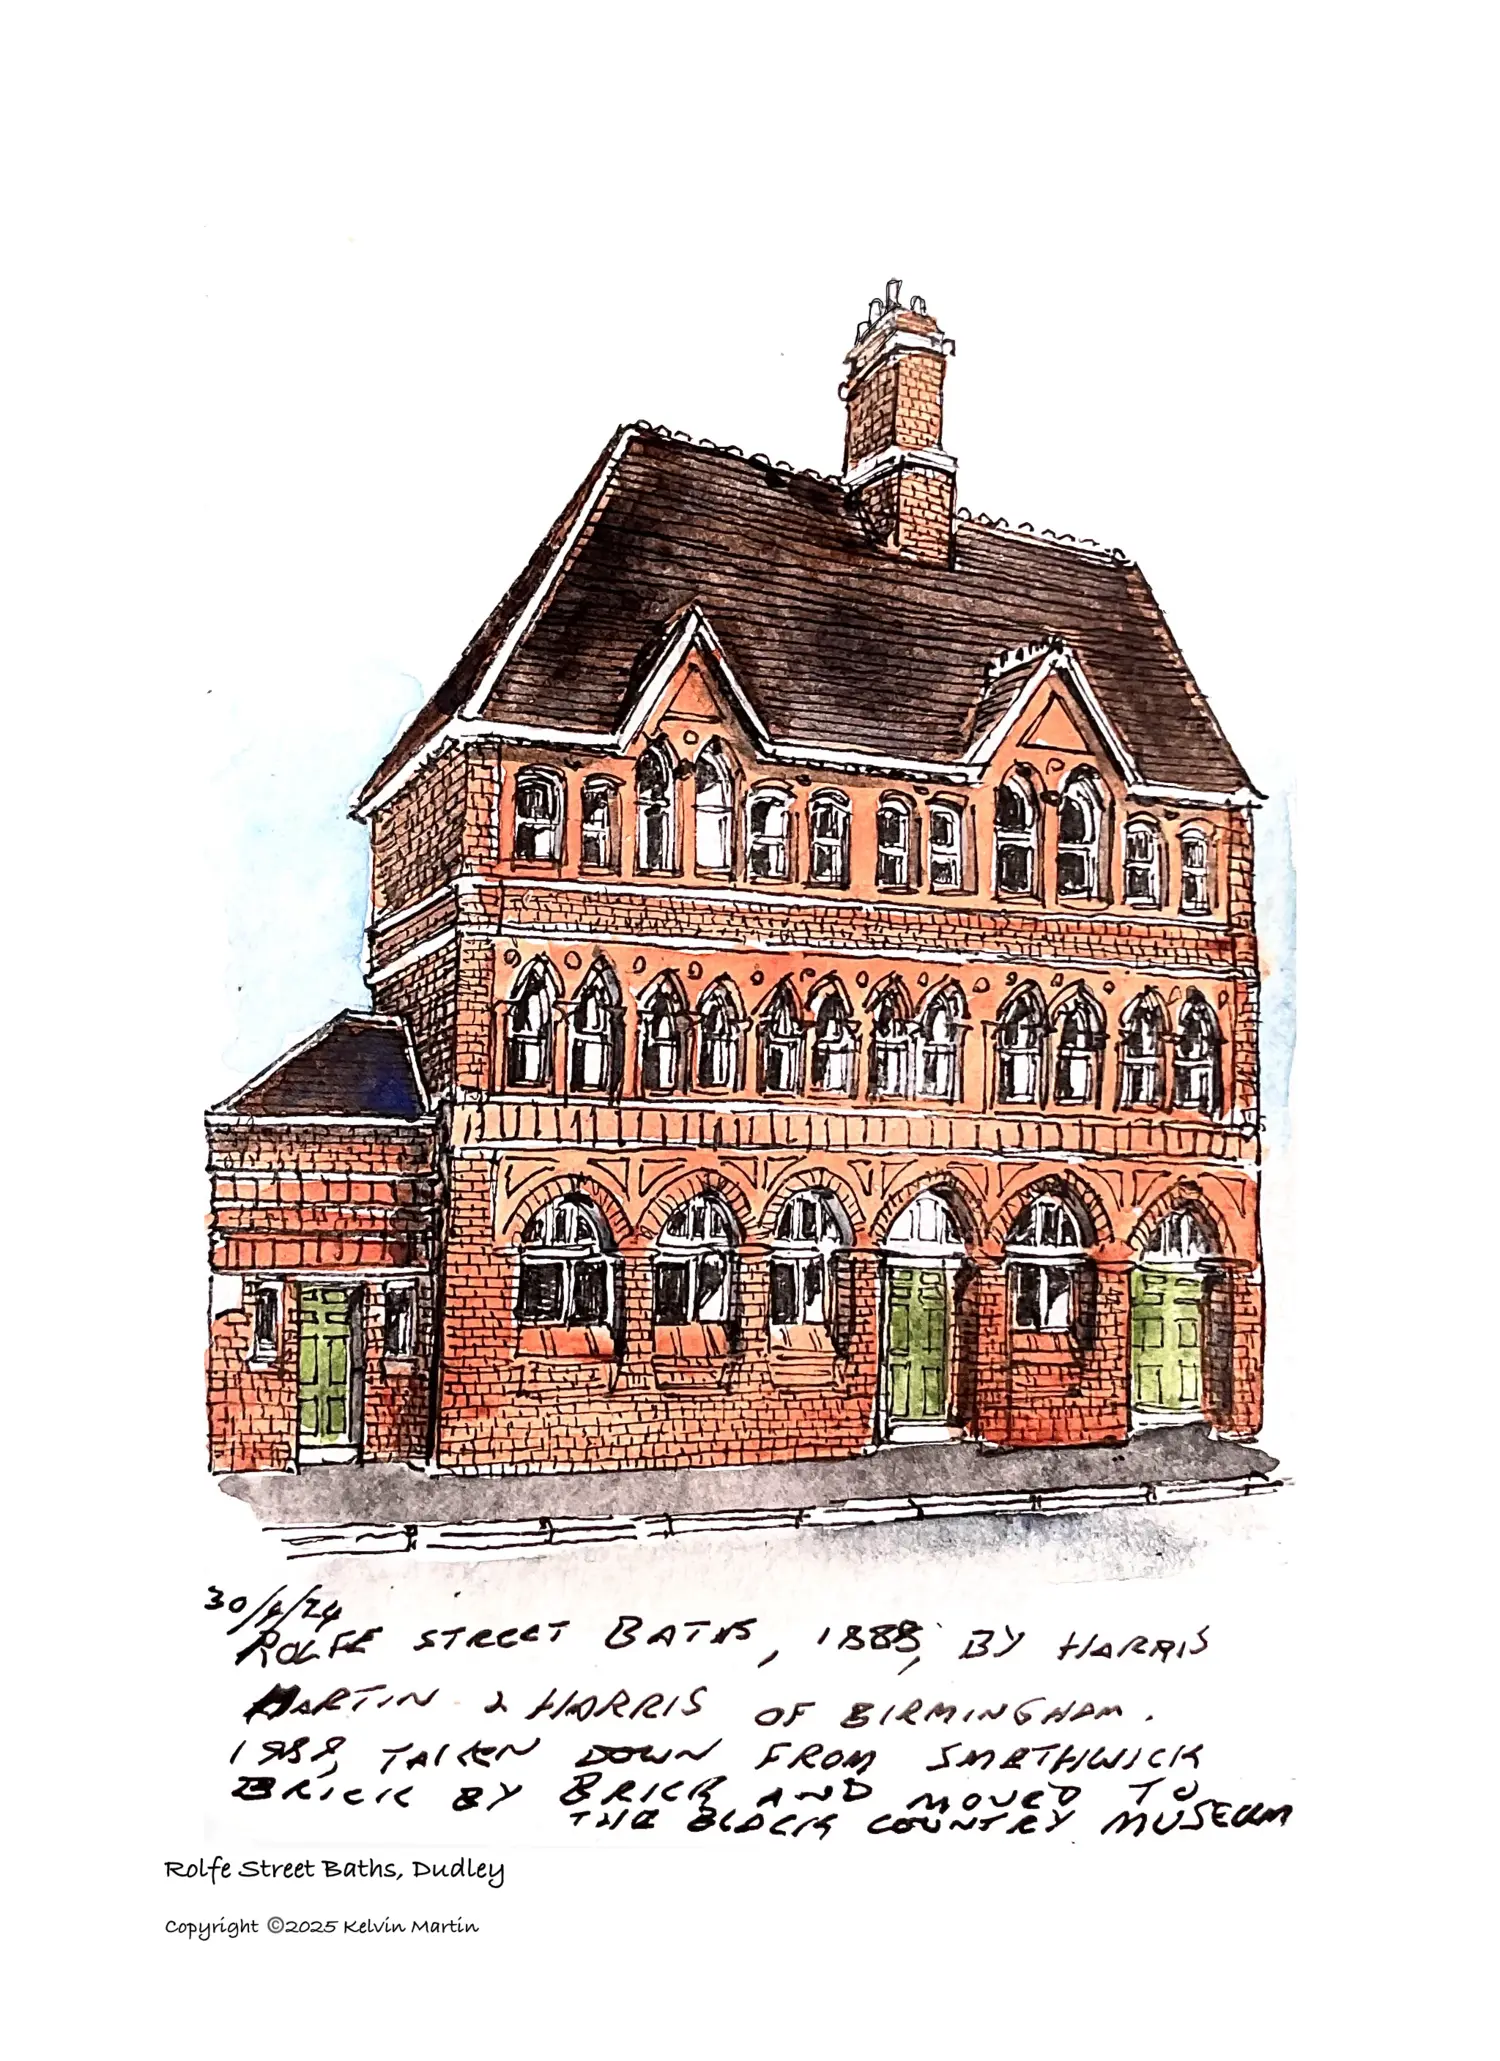 30/4/24
ROLFE STREET BATHS, 1888, BY HARRIS
MARTIN & HARRIS OF BIRMINGHAM.
1989, TAKEN DOWN FROM SMETHWICK
BRICK BY BRICK AND MOVED TO
THE BLACK COUNTRY MUSEUM
Rolfe Street Baths, Dudley
Copyright ©2025 Kelvin Martin